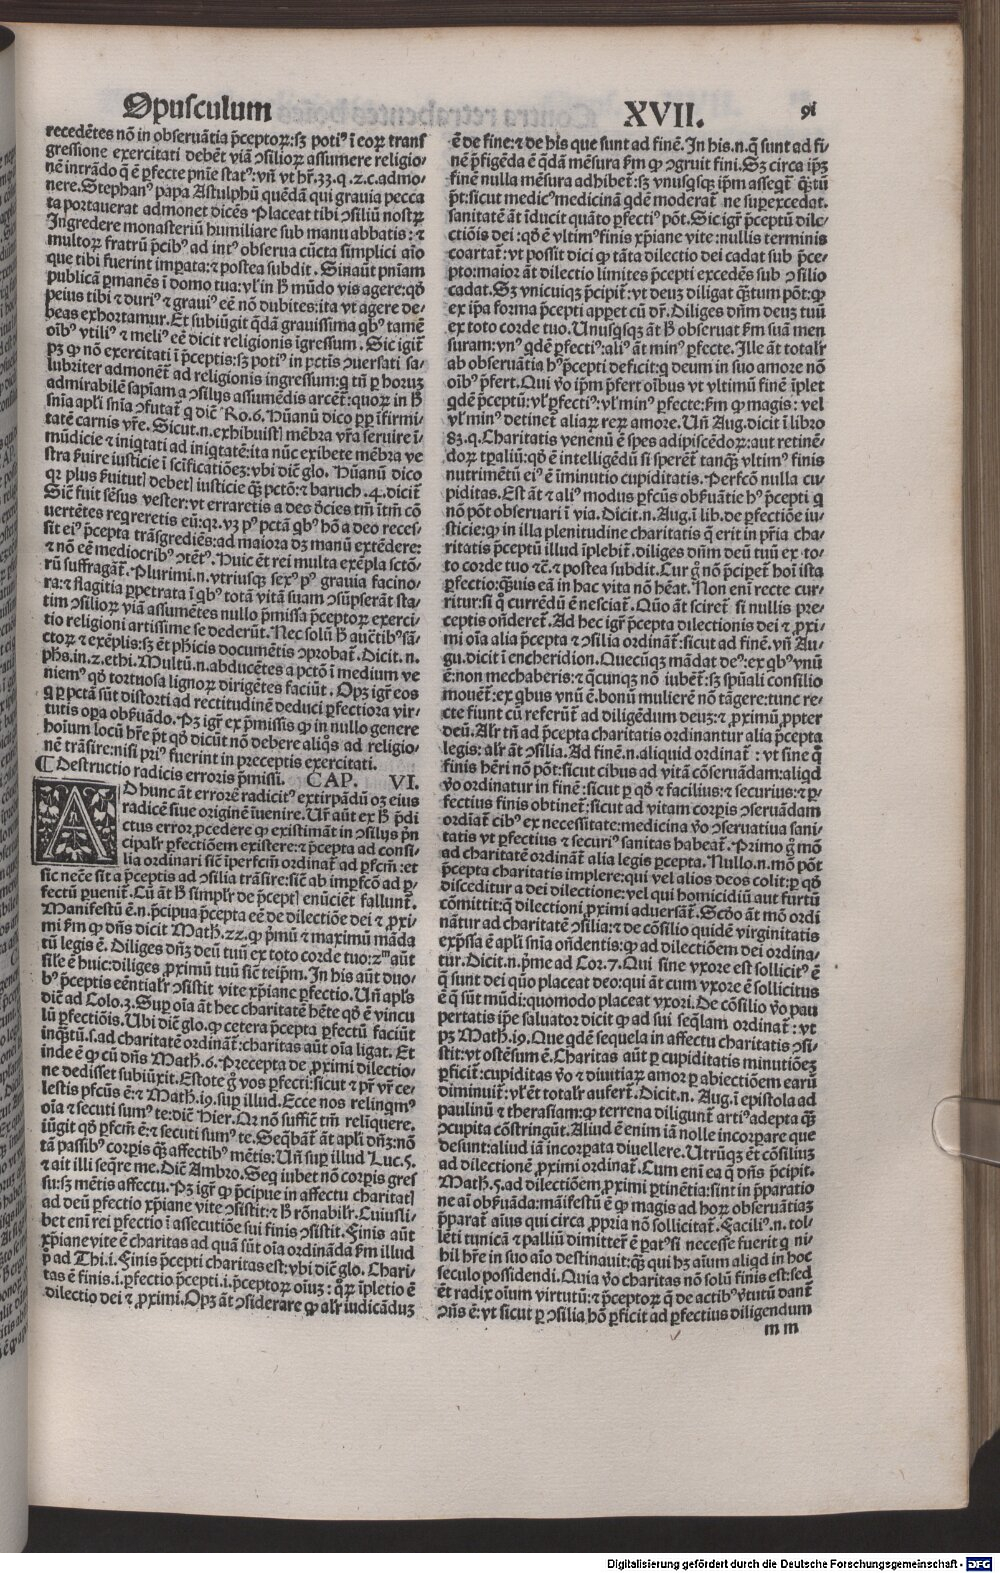 Opusculum XVII. 91
recedētes nō in obseruātia p̄ceptoꝝ: sꝫ potiꝰ ī eoꝝ trans
gressione exercitati debēt viā ↄsilioꝝ assumere religio-
nē intrādo q̄ ē ꝑfecte pnīe statꝰ: vn̄ vt hr̄.33.q.2.c.admo-
nere. Stephanꝰ papa Astulphū quēdā qui grauia pecca
ta portauerat admonet dicēs. Placeat tibi ↄsiliū nostrꝝ
Ingredere monasteriū humiliare sub manu abbatis: ⁊
multoꝝ fratrū p̄cibꝰ adintꝰ obserua cūcta simplici aīo
que tibi fuerint imꝑata: ⁊ postea subdit. Sinaūt pn̄iam
publicā ꝑmanēs ī domo tua: vł in ħ mūdo vis agere: qđ
peius tibi ⁊ duriꝰ ⁊ grauiꝰ eē nō dubites: ita vt agere de-
beas exhortamur. Et subiūgit q̄dā grauissima qbꝰ tamē
oībꝰ vtiliꝰ ⁊ meliꝰ eē dicit religionis īgressum. Sic igit̄
pꝫ ꝙ nō exercitati ī p̄ceptis: sꝫ potiꝰ in pctīs ↄuersati sa-
lubriter admonēt̄ ad religionis ingressum: q̄ tn̄ ꝑ horuꝫ
admirabilē sapīam a ↄsilijs assumēdis arcēt̄: quoꝝ in ħ
snīa apłi snīa ↄfutat̄ q diē Ro.6. Hūanū dico ꝓpꝑ īfirmi-
tatē carnis vr̄e. Sicut.n.exhibuistꝭ mēbra vr̄a seruire ī-
mūdicie ⁊ iniqtati ad iniqtatē: ita nūc exibete mēbra ve
stra ẜuire iusticie ī scīficatiōeꝫ: vbi diē glo. Hūanū dico
qꝛ plus ẜuitutꝭ debetꝭ iusticie q̄ꝫ pctō: ⁊ baruch.4.dicit̄
Sic̄ fuit sēsus vester: vt erraretis a deo ⁊c̄ies tm̄ itm̄ cō
uertētes reqreretis eū: qꝛ.vꝫ pꝰ pctā qbꝰ hō a deo reces-
sit eiꝰ p̄cepta trāsgrediēs: ad maiora dꝫ manū extēdere:
⁊ nō eē mediocribꝰ ↄtētꝰ. Huic ēt rei multa exēpla sctō-
rū suffragāt̄. Plurimi.n.vtriusqꝫ sexꝰ pꝰ grauia facino-
ra: ⁊ flagitia ꝑpetrata ī qbꝰ totā vitā suam ↄsūpserāt sta
tim ↄsilioꝝ viā assumētes nullo p̄missa p̄ceptoꝝ exerci-
tio religioni artissime se dederūt. Nec solū ħ auētibꝰ sā-
ctoꝝ ⁊ exēplis: sꝫ ēt ph̄icis documētis ↄprobat̄. Dicit.n.
ph̄s.in.2.ethi. Multū.n.abducētes a pctō ī medium ve
niemꝰ qđ tortuosa lignoꝝ dirigētes faciūt. Opꝫ igr̄ eos
q ꝑ pctā sūt distorti ad rectitudinē deduci ꝑfectiora vir-
tutis oꝑa obẜuādo. Pꝫ igr̄ ex p̄missis ꝙ in nullo genere
hoium locū hr̄e pōt qđ dicūt nō debere aliqs ad religio-
nē trāsire: nisi priꝰ fuerint in preceptis exercitati.
¶ Destructio radicis erroris p̄missi. CAP. VI.
AD hunc āt errorē radicitꝰ extirpādū oꝫ eius
radicē siue originē īuenire. Ur̄ aūt ex ħ p̄di
ctus error ꝓcedere ꝙ existimāt in ↄsilijs p̄n
cipalr̄ ꝑfectiōem existere: ⁊ p̄cepta ad consi-
lia ordinari sic̄ īperfcm̄ ordinat̄ ad ꝑfcm̄: et
sic necē sit a p̄ceptis ad ↄsilia trāsire: sic̄ ab impfcō ad ꝑ-
fectū ꝑuenit̄. Cū āt ħ simplr̄ de p̄ceptꝭ enūciēt fallunt̄.
Manifestū ē.n.p̄cipua p̄cepta eē de dilectiōe dei ⁊ ꝓxi-
mi ẜm ꝙ dn̄s dicit Math.22.ꝙ p̄mū ⁊ maximū māda
tū legis ē. Diliges dn̄ꝫ deū tuū ex toto corde tuo: 2ᵐ aūt
sile ē huic: diliges ꝓximū tuū sic̄ teip̄m. In his aūt duo-
bꝰ p̄ceptis eēntialr̄ ↄsistit vite xp̄iane ꝑfectio. Un̄ apls̄
diē ad Colo.3. Suꝑ oīa āt hec charitatē hēte qđ ē vincu
lū ꝑfectiōis. Ubi diē glo.ꝙ cetera p̄cepta ꝑfectū faciūt
inq̄ꝫtū.s.ad charitatē ordināt̄: charitas aūt oīa ligat. Et
inde ē ꝙ cū dn̄s Math.6. Precepta de ꝓximi dilectio-
ne dedisset subiūxit. Estote ḡ vos ꝑfecti: sicut ⁊ pr̄ vr̄ ce-
lestis ꝑfcūs ē: ⁊ Math.19.suꝑ illud. Ecce nos relinqmꝰ
oīa ⁊ secuti sumꝰ te: diē Hier. Qꝛ nō suffic̄t tm̄ reliquere.
iūgit qđ ꝑfcm̄ ē: ⁊ secuti sumꝰ te. Seq̄bāt̄ āt apłi dn̄ꝫ: nō
tā passibꝰ corpis q̄ꝫ affectibꝰ mētis: Un̄ sup illud Luc.5.
⁊ ait illi seq̄re me. Diē Ambro. Seq iubet nō corpis gres
su: sꝫ mētis affectu. Pꝫ igr̄ ꝙ p̄cipue in affectu charitatꝭ
ad deū ꝑfectio xp̄iane vite ↄsistit: ⁊ ħ rōnabilr̄. Cuiusli-
bet enī rei ꝑfectio ī assecutiōe sui finis ↄsistit. Finis aūt
xp̄iane vite ē charitas ad quā sūt oīa ordināda ẜm illud
p̄ ad Thi.i. Finis p̄cepti charitas est: vbi diē glo. Chari-
tas ē finis.i.ꝑfectio p̄cepti.i.p̄ceptoꝝ oiuꝫ: q̄ꝝ īpletio ē
dilectio dei ⁊ ꝓximi. Opꝫ āt ↄsiderare ꝙ alr̄ iudicāduꝫ
ē de fine: ⁊ de his que sunt ad finē. In his.n.q̄ sunt ad fi
nē p̄figēda ē q̄dā mēsura ẜm ꝙ ↄgruit fini. Sꝫ circa ip̄ꝫ
finē nulla mēsura adhibet̄: sꝫ vnusqsqꝫ ip̄m asseqt̄ q̄ꝫtū
pōt: sicut medicꝰ medicinā qdē moderat̄ ne suꝑexcedat.
sanitatē āt īducit quāto ꝑfectiꝰ pōt. Sic igr̄ p̄ceptū dile-
ctiōis dei: qđ ē vltimꝰ finis xp̄iane vite: nullis terminis
coartat̄: vt possit dici ꝙ tāta dilectio dei cadat sub p̄ce-
pto: maior āt dilectio limites p̄cepti excedēs sub ↄsilio
cadat. Sꝫ vnicuiqꝫ p̄cipit̄: vt deuꝫ diligat q̄ꝫtum pōt: ꝙ
ex ip̄a forma p̄cepti apꝑet cū dr̄. Diliges dn̄m deuꝫ tuū
ex toto corde tuo. Unusqsqꝫ āt ħ obseruat ẜm suā men
suram: vnꝰ qdē ꝑfectiꝰ: aliꝰ āt minꝰ ꝑfecte. Ille āt totalr̄
ab obseruātia hꝰ p̄cepti deficit: q deum in suo amore nō
oībꝰ p̄fert. Qui v̊o ip̄m p̄fert oībus vt vltimū finē īplet
qdē p̄ceptū: vł ꝑfectiꝰ: vł minꝰ ꝑfecte: ẜm ꝙ magis: vel
vł minꝰ detinet̄ aliaꝝ reꝝ amore. Un̄ Aug.dicit ī libro
83.q. Charitatis venenū ē spes adipiscēdoꝝ: aut retinē-
doꝝ tp̄aliū: qđ ē intelligēdū si sperēt̄ tanq̄ꝫ vltimꝰ finis
nutrimētū eiꝰ ē īminutio cupiditatis. Perfcō nulla cu-
piditas. Est āt ⁊ aliꝰ modus ꝑfcūs obẜuātie hꝰ p̄cepti q
nō pōt obseruari ī via. Dicit.n.Aug.ī lib.de ꝑfectiōe iu-
sticie: ꝙ in illa plenitudine charitatis q̄ erit in pr̄ia cha-
ritatis p̄ceptū illud īplebit̄. diliges dn̄m deū tuū ex to-
to corde tuo ⁊c̄. ⁊ postea subdit. Cur ḡ nō p̄cipet̄ hoī ista
ꝑfectio: q̄ꝫuis eā in hac vita nō hēat. Non enī recte cur-
ritur: si q̊ currēdū ē nesciat̄. Quō āt sciret̄ si nullis pre-
ceptis on̄deret̄. Ad hec igr̄ p̄cepta dilectionis dei ⁊ ꝓxi-
mi oīa alia p̄cepta ⁊ ↄsilia ordināt̄: sicut ad finē. vn̄ Au-
gu.dicit ī encheridion. Quecūqꝫ mādat deꝰ: ex qbꝰ vnū
ē: non mechaberis: ⁊ q̄cunqꝫ nō iubēt̄: sꝫ spūali consilio
mouēt̄: ex qbus vnū ē. bonū mulierē nō tāgere: tunc re-
cte fiunt cū referūt̄ ad diligēdum deuꝫ: ⁊ ꝓximū ꝓpter
deū. Alr̄ tn̄ ad p̄cepta charitatis ordinantur alia p̄cepta
legis: alr̄ āt ↄsilia. Ad finē.n.aliquid ordinat̄: vt sine q̊
finis hēri nō pōt: sicut cibus ad vitā cōseruādam: aliqd
v̊o ordinatur in finē: sicut ꝑ qđ ⁊ facilius: ⁊ securius: ⁊ ꝑ-
fectius finis obtinet̄: sicut ad vitam corpis ↄseruādam
ordīat̄ cibꝰ ex necessitate: medicina v̊o ↄseruatiua sani-
tatis vt ꝑfectius ⁊ securiꝰ sanitas habeat̄. Primo ḡ mō
ad charitatē ordināt̄ alia legis p̄cepta. Nullo.n.mō pōt
p̄cepta charitatis implere: qui vel alios deos colit: ꝑ qđ
disceditur a dei dilectione: vel qui homicidiū aut furtū
cōmittit: q̄ dilectioni ꝓximi aduersāt̄. Scđo āt mō ordi
nātur ad charitatē ↄsilia: ⁊ de cōsilio quidē virginitatis
exp̄ssa ē apłi snīa on̄dentis: ꝙ ad dilectiōem dei ordina-
tur. Dicit.n.p̄me ad Cor.7. Qui sine vxore est sollicitꝰ ē
q̄ sunt dei quō placeat deo: qui āt cum vxore ē sollicitus
ē q̄ sūt mūdi: quomodo placeat vxori. De cōsilio v̊o pau
pertatis ip̄e saluator dicit ꝙ ad sui seq̄lam ordinat̄: vt
pꝫ Math.19. Que qdē sequela in affectu charitatis ↄsi-
stit: vt ostēsum ē. Charitas aūt ꝑ cupiditatis minutiōeꝫ
ꝑficit̄: cupiditas v̊o ⁊ diuitiaꝝ amor ꝑ abiectiōem earū
diminuit̄: vł ēt totalr̄ aufert̄. Dicit.n. Aug.ī epistola ad
paulinū ⁊ therasiam: ꝙ terrena diligunt̄ artiꝰ adepta q̄ꝫ
ↄcupita cōstringūt. Aliud ē enim iā nolle incorꝑare que
desunt: aliud iā incorꝑata diuellere. Utrūqꝫ ēt cōsiliuꝫ
ad dilectionē ꝓximi ordinat̄. Cum enī ea q̄ dn̄s p̄cipit.
Math.5.ad dilectiōem ꝓximi ꝑtinētia: sint in p̄paratio
ne aī obẜuāda: māifestū ē ꝙ magis ad hoꝝ obseruātiaꝫ
p̄parat̄ aīus qui circa ꝓpria nō sollicitat̄. Faciliꝰ.n.tol-
leti tunicā ⁊ palliū dimittet̄ ē ꝑatꝰ si necesse fuerit q ni-
hil hr̄e in suo aīo destinauit: q̄ꝫ qui hꝫ aīum aliqd in hoc
seculo possidendi. Quia v̊o charitas nō solū finis est: sed
ēt radix oium virtutū: ⁊ p̄ceptoꝝ q̄ de actibꝰ v̊tutū dant̄
ↄn̄s ē: vt sicut ꝑ ↄsilia hō ꝑficit ad ꝑfectius diligendum
m m
Digitalisierung gefördert durch die Deutsche Forschungsgemeinschaft - DFG